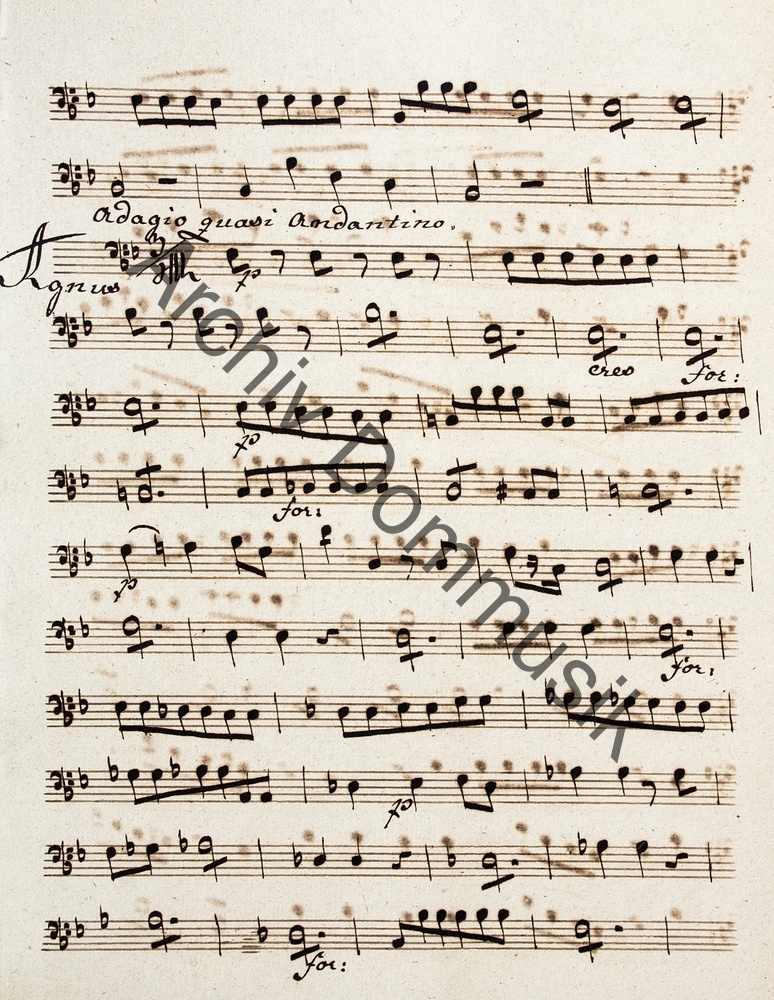 Adagio quasi Andantino.
Agnus
p
cres for:
p
for:
p
for:
p
for:
Archiv Dommusik